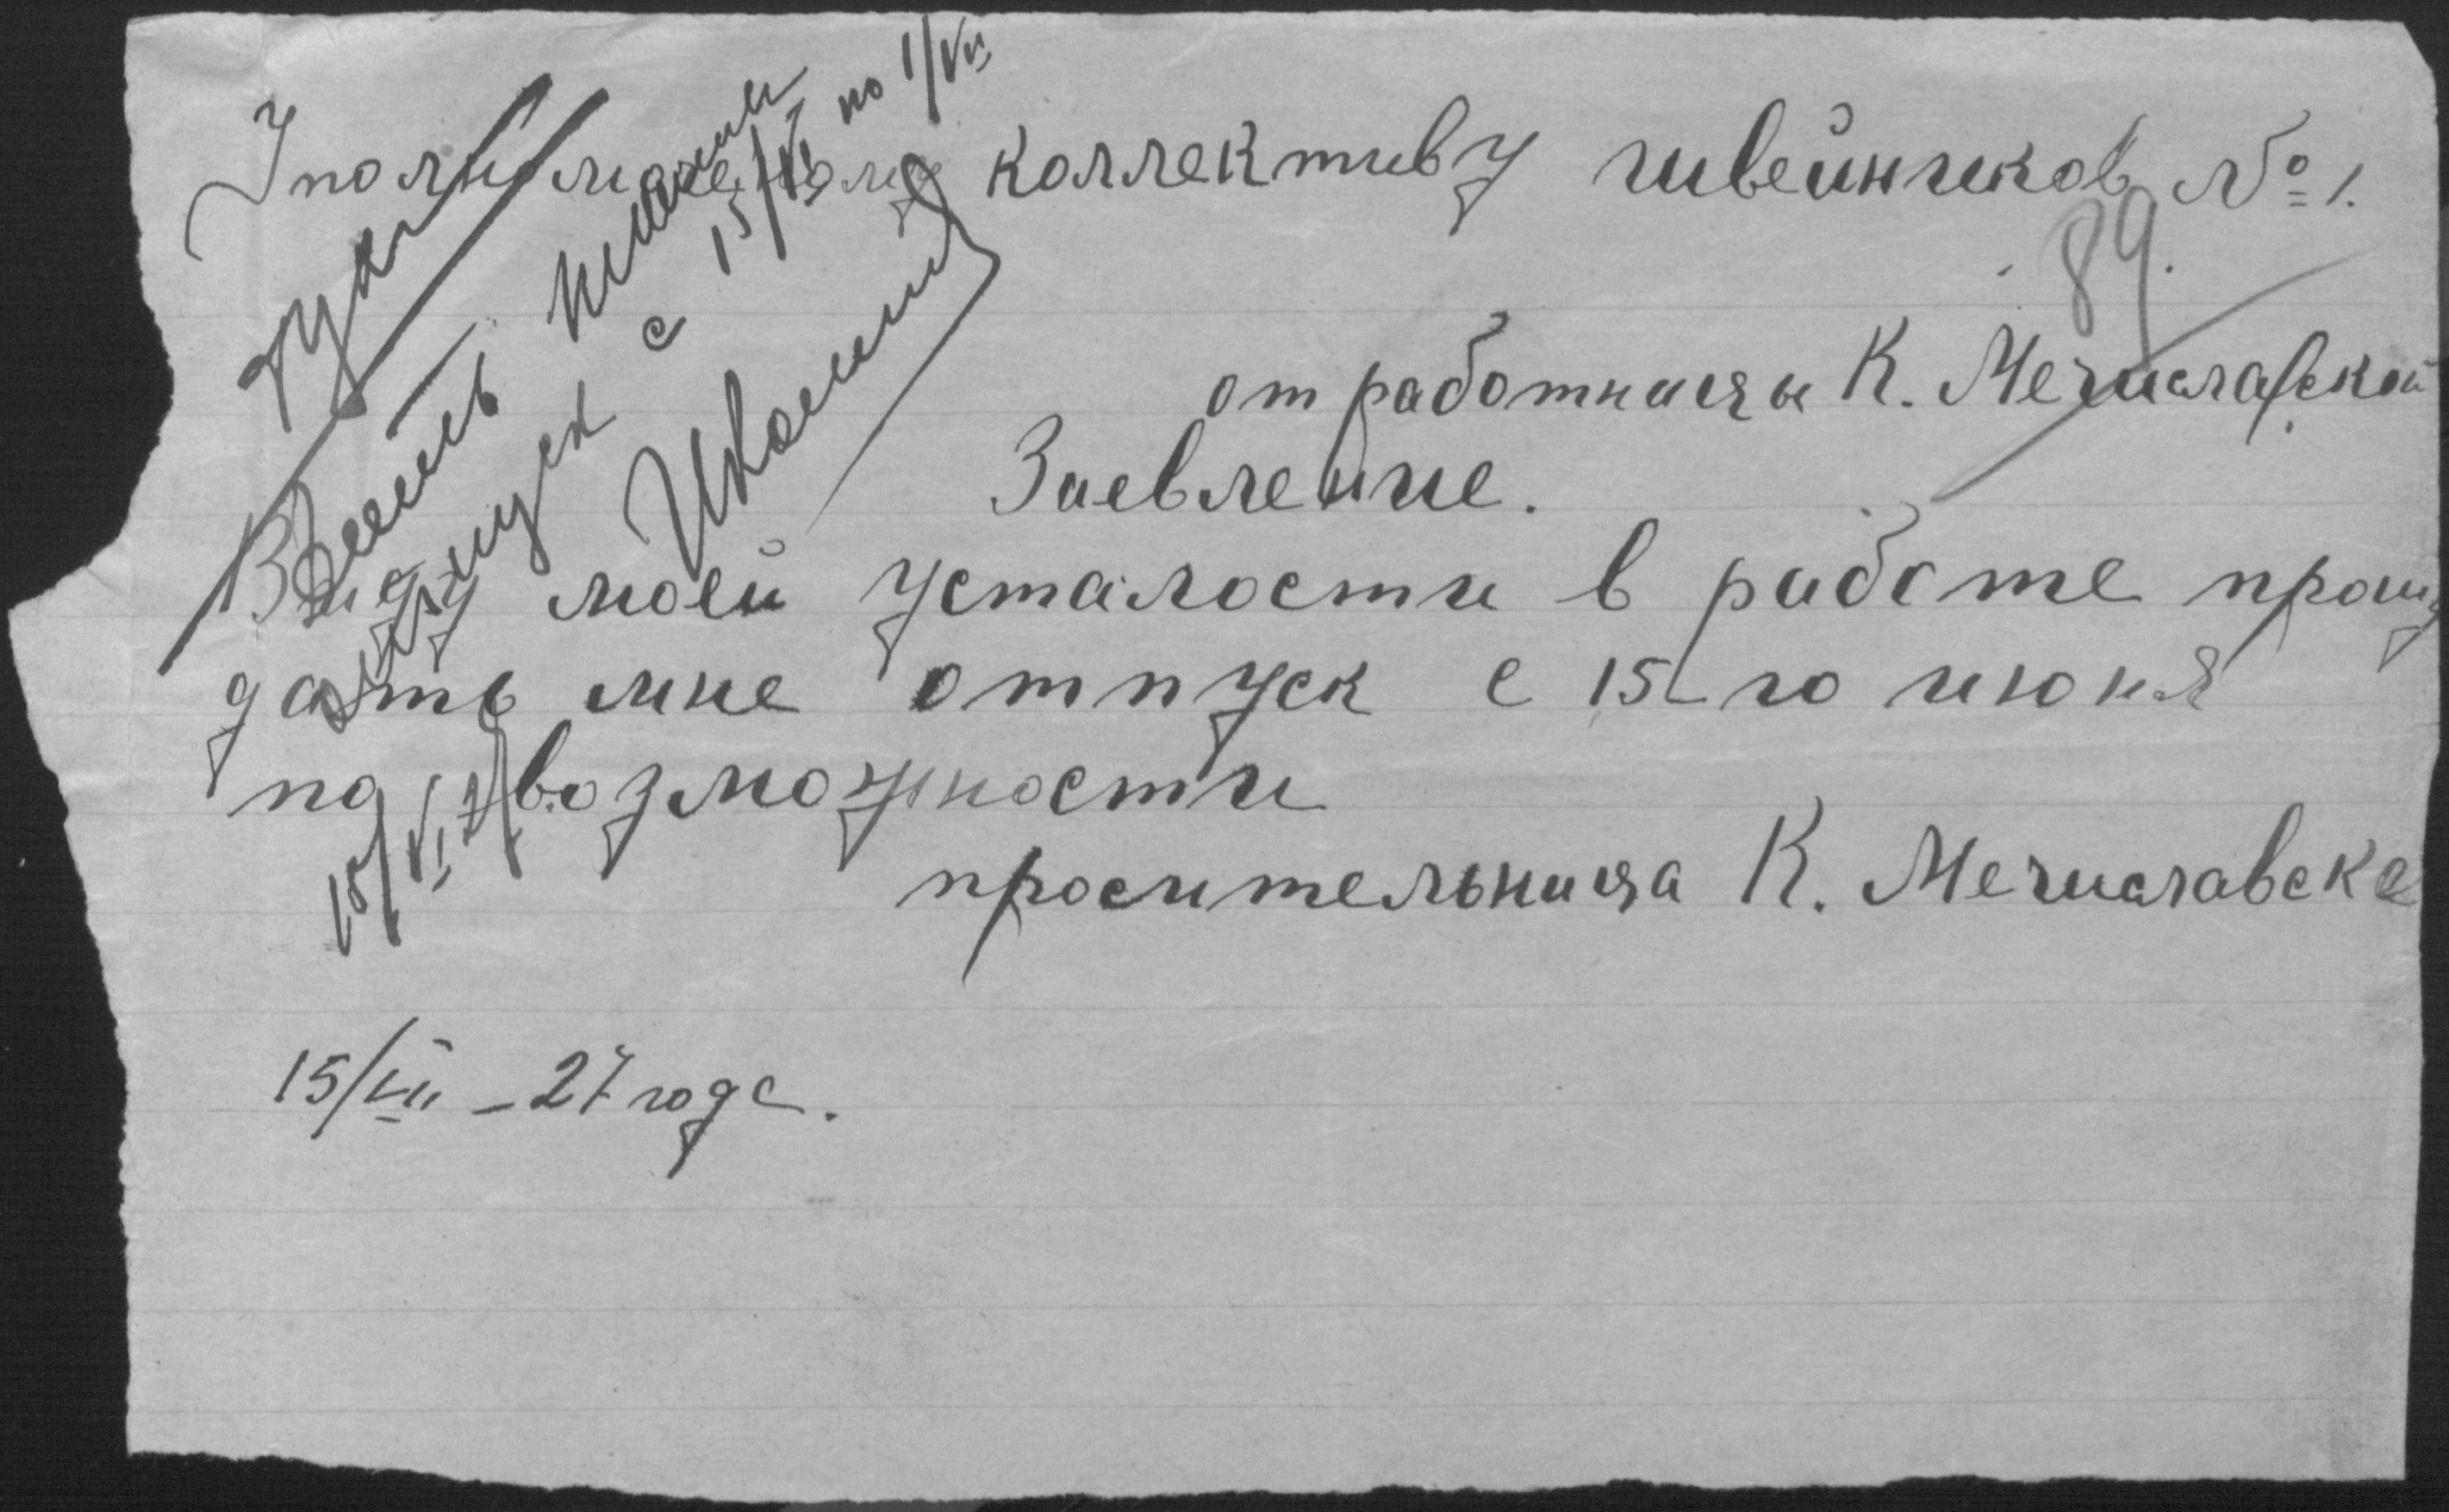 Уполномоченому коллективу швейников № 1.
89.
от работницы К. Мечиславской
Заевление.
Ввиду моей усталости в работе прошу
дать мне отпуск с 15-го июня
по возможности
просительница К. Мечиславска
15/VII - 27 года.
отпуск с 15/VI по 1/VII
15/VI 27